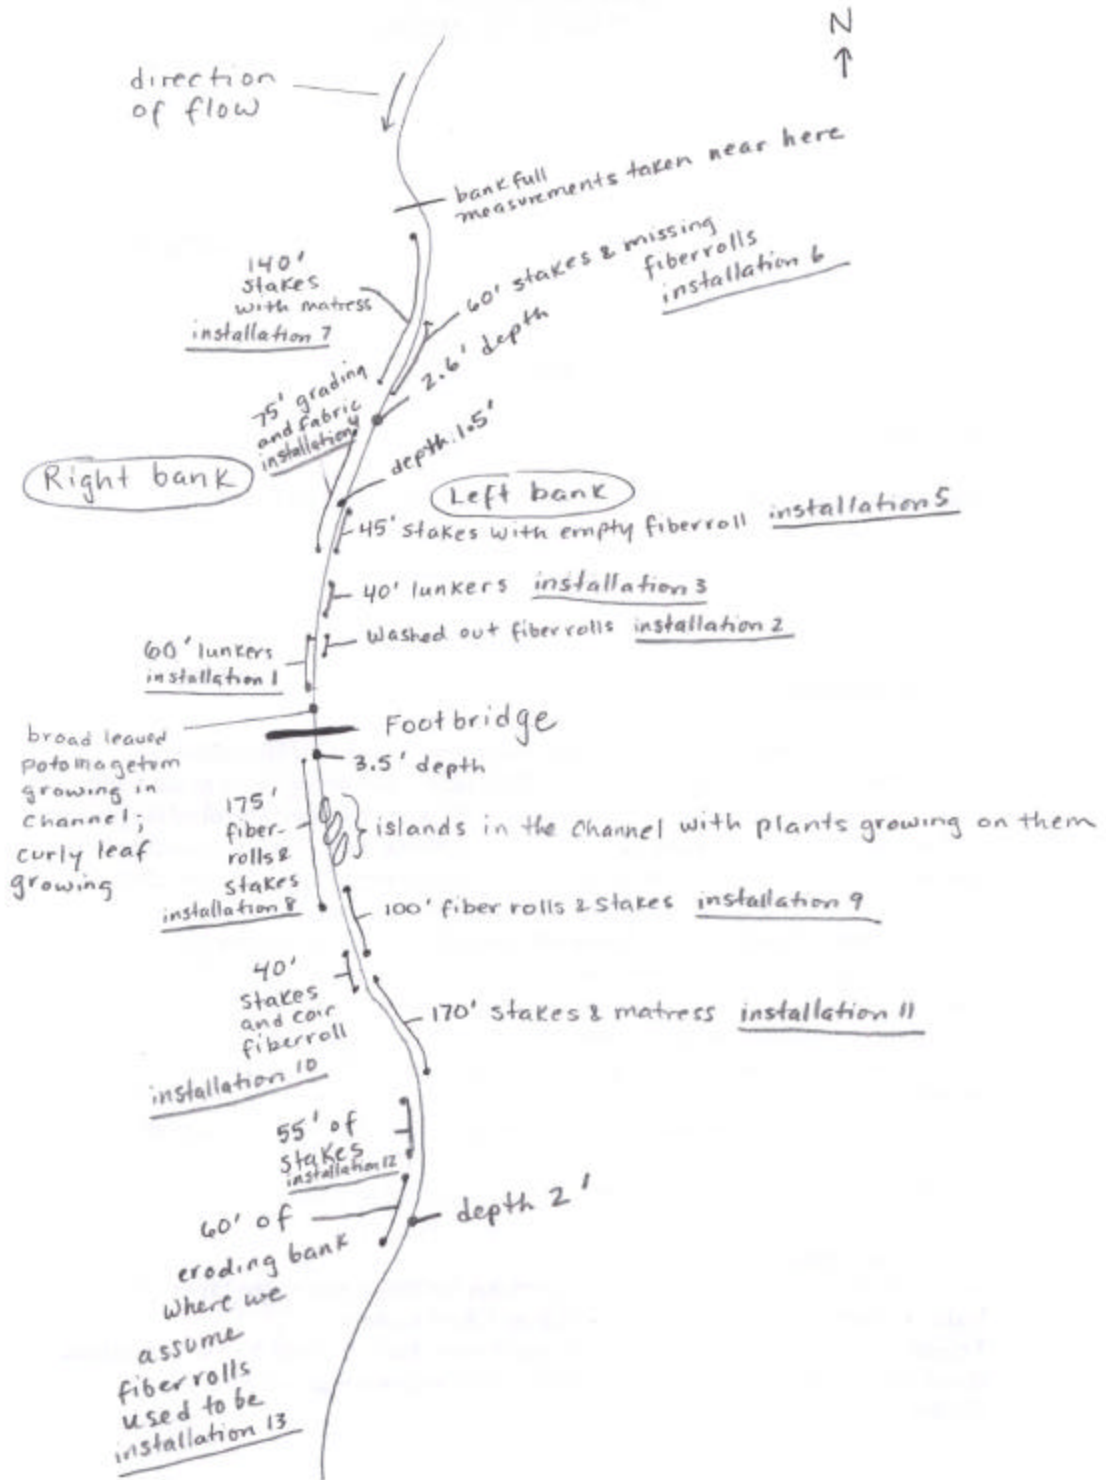 N
direction
of flow
bankfull
measurements taken near here
140'
stakes
with matress
installation 7
60' stakes & missing
fiberrolls
installation 6
2.6' depth
75' grading
and fabric
installation 4
depth 1.5'
Right bank
Left bank
45' stakes with empty fiberroll installation 5
40' lunkers installation 3
washed out fiberrolls installation 2
60' lunkers
installation 1
Footbridge
broad leaved
potomagetum
growing in
channel;
curly leaf
growing
3.5' depth
175'
fiber-
rolls &
stakes
installation 8
islands in the channel with plants growing on them
100' fiber rolls & stakes installation 9
40'
stakes
and coir
fiberroll
installation 10
170' stakes & matress installation 11
55' of
stakes
installation 12
60' of
eroding bank
where we
assume
fiberrolls
used to be
installation 13
depth 2'